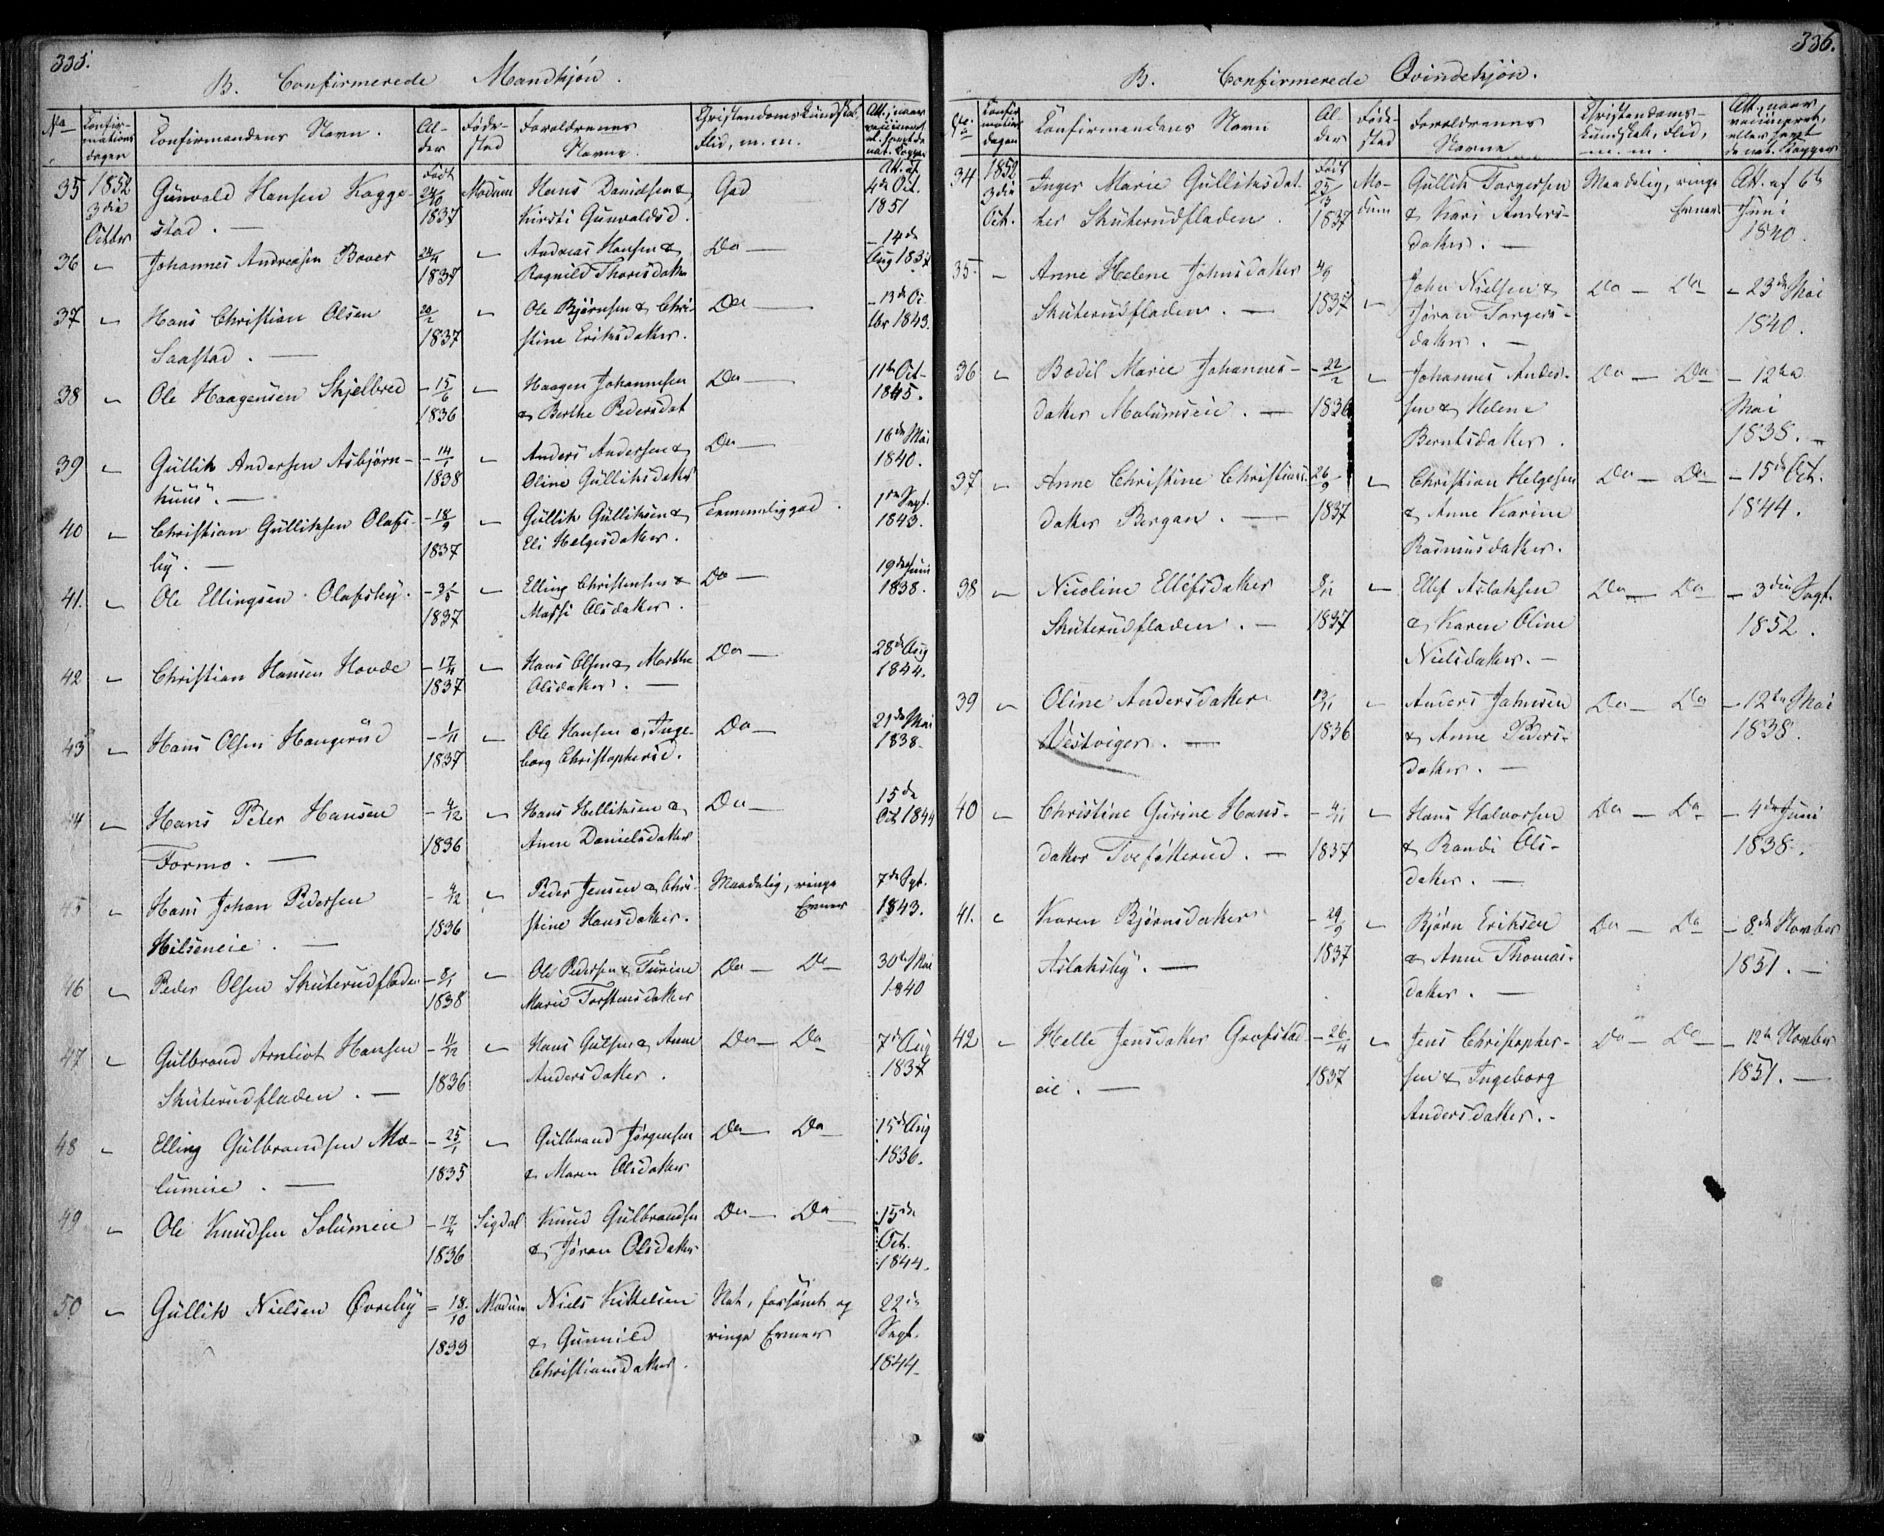 335.
B. Confirmerede Mandkjøn.
No Confirmations dagen Confirmandens Navn. Alder Fødested Forældrenes Navne. Christendoms Kundskab, Flid, m. m. Att., naar vaccineret
35 1852 3die Octbr Gunvald Hansen Kaggestad. — Født 24/10 1837 Modum Hans Danielsen & Kirsti Gunvaldsd. God Att. af 4de Oct. 1851
36 „ Johannes Andreasen Bover 24/4 1837 „ Andreas Hansen & Ragnild Thorisdatter Do — 14de Aug 1837
37 „ Hans Christian Olsen Saastad. — 20/2 1837 „ Ole Bjørnsen & Christine Eriksdatter. Do — 13de Octbr 1843.
38 „ Ole Haagensen Skjelbred 15/6 1836 „ Haagen Johannesen & Berthe Pedersdat Do — 11te Oct 1845.
39 „ Gullik Andersen Asbjørnhuus. — 14/1 1838 „ Anders Andersen & Oline Gulliksdatter Do — 18de Mai 1840.
40 „ Christian Gulliksen Olafsby. — 18/9 1837 „ Gullik Gulliksen & Eli Helgesdatter. Temmeliggod. 1ste Sept. 1843.
41. „ Ole Ellingsen Olafsby. 3/5 1837 „ Elling Christensen & Massi Olsdatter. Do — 19de Juni 1838.
42 „ Christian Hansen Hovde 17/4 1837 „ Hans Olsen & Marthe Olsdatter. — Do — 28de Aug 1844.
43 „ Hans Olsen Haugerud 1/11 1837 „ Ole Hansen & Ingeborg Christophersd. Do — 21de Mai 1838.
44 „ Hans Peter Hansen Formo. — 4/12 1836 „ Hans Kittilsen & Anne Danielsdatter Do — 15de Oct 1844
45 „ Hans Johan Pedersen Hilseneie. — 4/12 1836 „ Peder Jensen & Christine Hansdatter. Maadelig, ringe Evner 7de Sept. 1843.
46 „ Peder Olsen Skuterudfladen 8/1 1838 „ Ole Pedersen & Turine Marie Torstensdatter Do — Do 30te Mai 1840
47 „ Gulbrand Arnliot Hansen Skuterudfladen. — 11/12 1836 „ Hans Gulsen & Anne Andersdatter. Do — Do 7de Aug 1837
48 „ Elling Gulbrandsen Molumeie. — 25/1 1835 „ Gulbrand Jørgensen & Maren Olsdatter Do — Do 15de Aug 1836.
49 „ Ole Knudsen Solumeie 17/4 1836 Sigdal Knud Gulbrandsen & Jøran Olsdatter Do — Do 15de Oct. 1844.
50 „ Gullik Nielsen Øvreby 18/10 1833 Modum Niels Kittelsen & Gunnild Christiansdatter. Not, forsømt og ringe Evner 22de Sept. 1844
336.
B. Confirmerede Qvindekjøn.
No Confirmations dagen Confirmandens Navn Alder Fødested Forældrenes Navne Christendomskundskab, Flid, m. m. Att., naar vaccineret, eller havt de nat. Kopper
34 1852 3die Oct. Inger Marie Gulliksdatter Skuterudfladen. Født 1837 Modum Gullik Torgersen & Kari Andersdatter. — Maadelig, ringe Evner Att. af 6te Juni 1840.
35. „ Anne Helene Johnsdatter Skuterudfladen. — 1837 „ John Nielsen & Jøran Torgersdatter. — Do — Do — 23de Mai 1840.
36 „ Bodil Marie Johannesdatter Molumseie. — 22/2 1836 „ Johannes Andersen & Helene Berntsdatter. Do — Do — 12te Mai 1838. —
37 „ Anne Christine Christiansdatter Bergan. — 26/9 1837 „ Christian Helgesen & Anne Karine Rasmusdatter. Do — Do — 15de Oct. 1844.
38 „ Nicoline Ellefsdatter Skuterudfladen. — 8/11 1837 „ Ellef Aslaksen & Karen Oline Nielsdatter. — Do — Do — 3die Sept. 1852.
39 „ Oline Andersdatter Vestviger. — 13/11 1836 „ Anders Johnsen & Anne Pedersdatter. — Do — Do — 12te Mai 1838.
40 „ Christine Gurine Hansdatter Tveføtterud. — 4/11 1837 „ Hans Halvorsen & Randi Olsdatter. — Do — Do — 4de Juni 1838.
41. „ Karen Bjørnsdatter Aslaksby. — 29/9 1837 „ Bjørn Eriksen & Anne Thomasdatter. — Do — Do — 8de Novbr 1851. —
42 „ Helle Jensdatter Grøfstadeie. — 26/4 1837 „ Jens Christophersen & Ingeborg Andersdatter. — Do — Do — 12te Novbr 1851. —